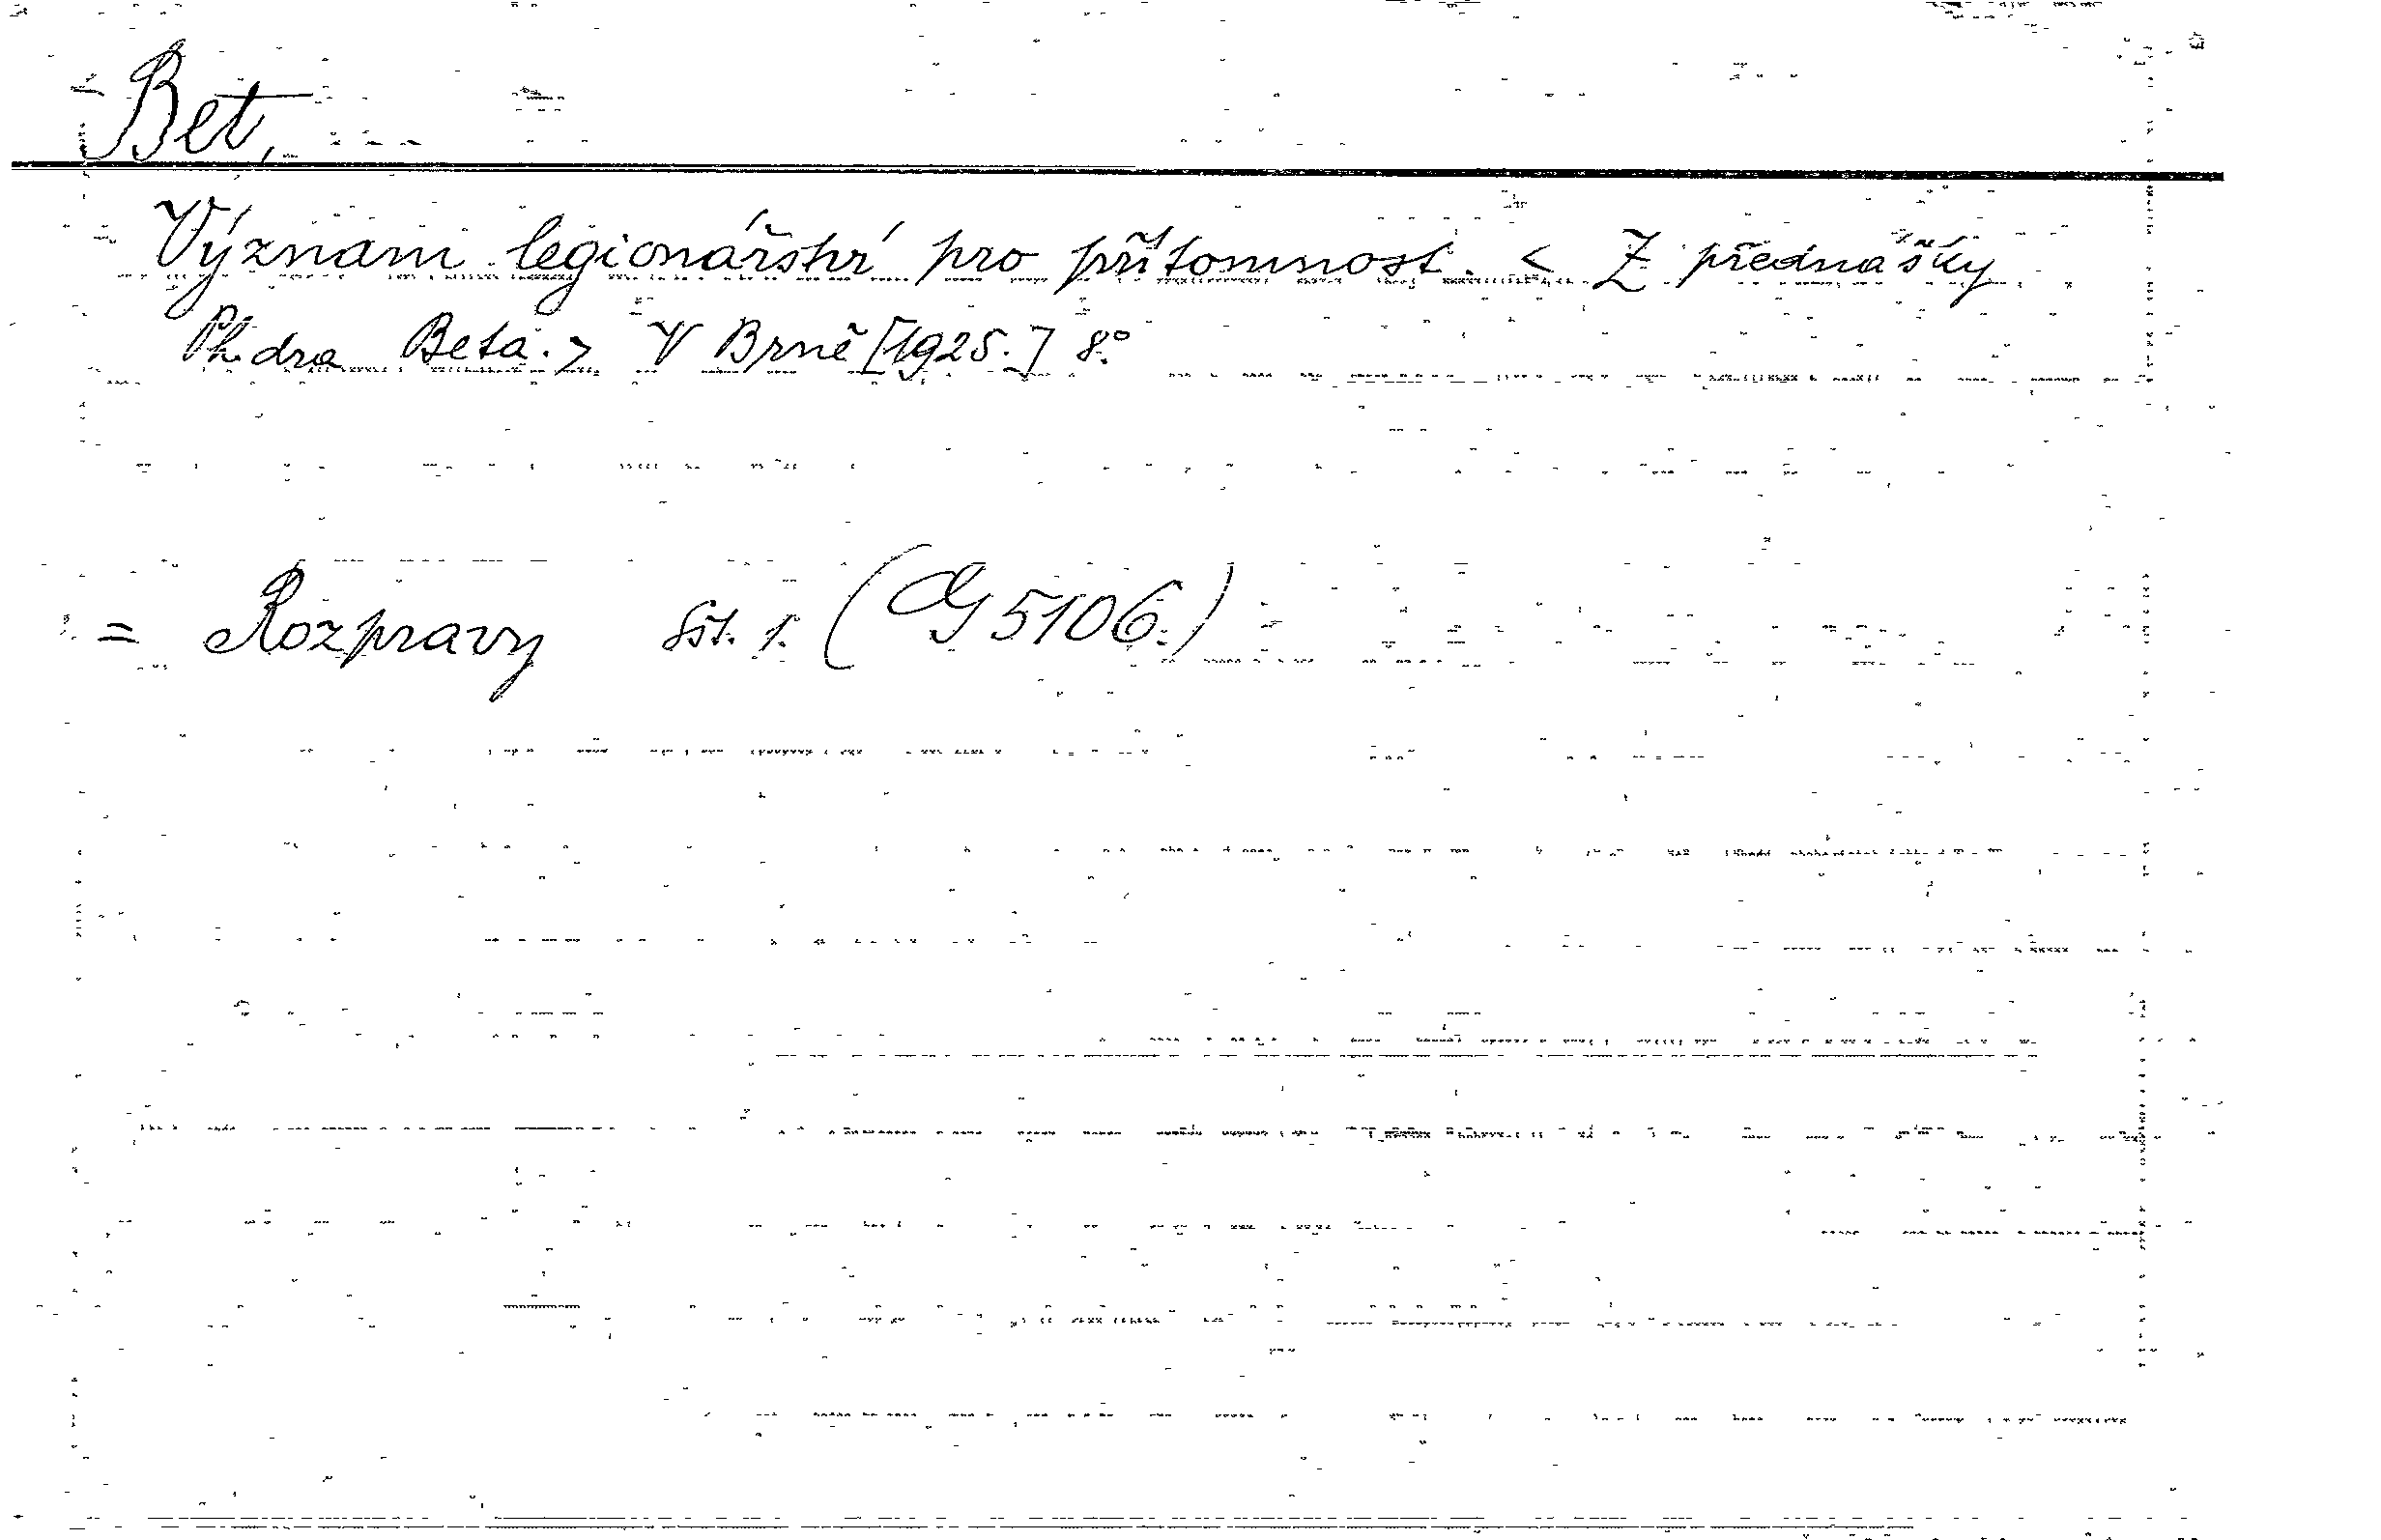 Bet,
Význam legionářství pro přítomnost. < Z přednášky
Ph. dra Beta. > V Brně [1925.] 8.°
= Rozpravy Sšt. 1. (G 5106.)